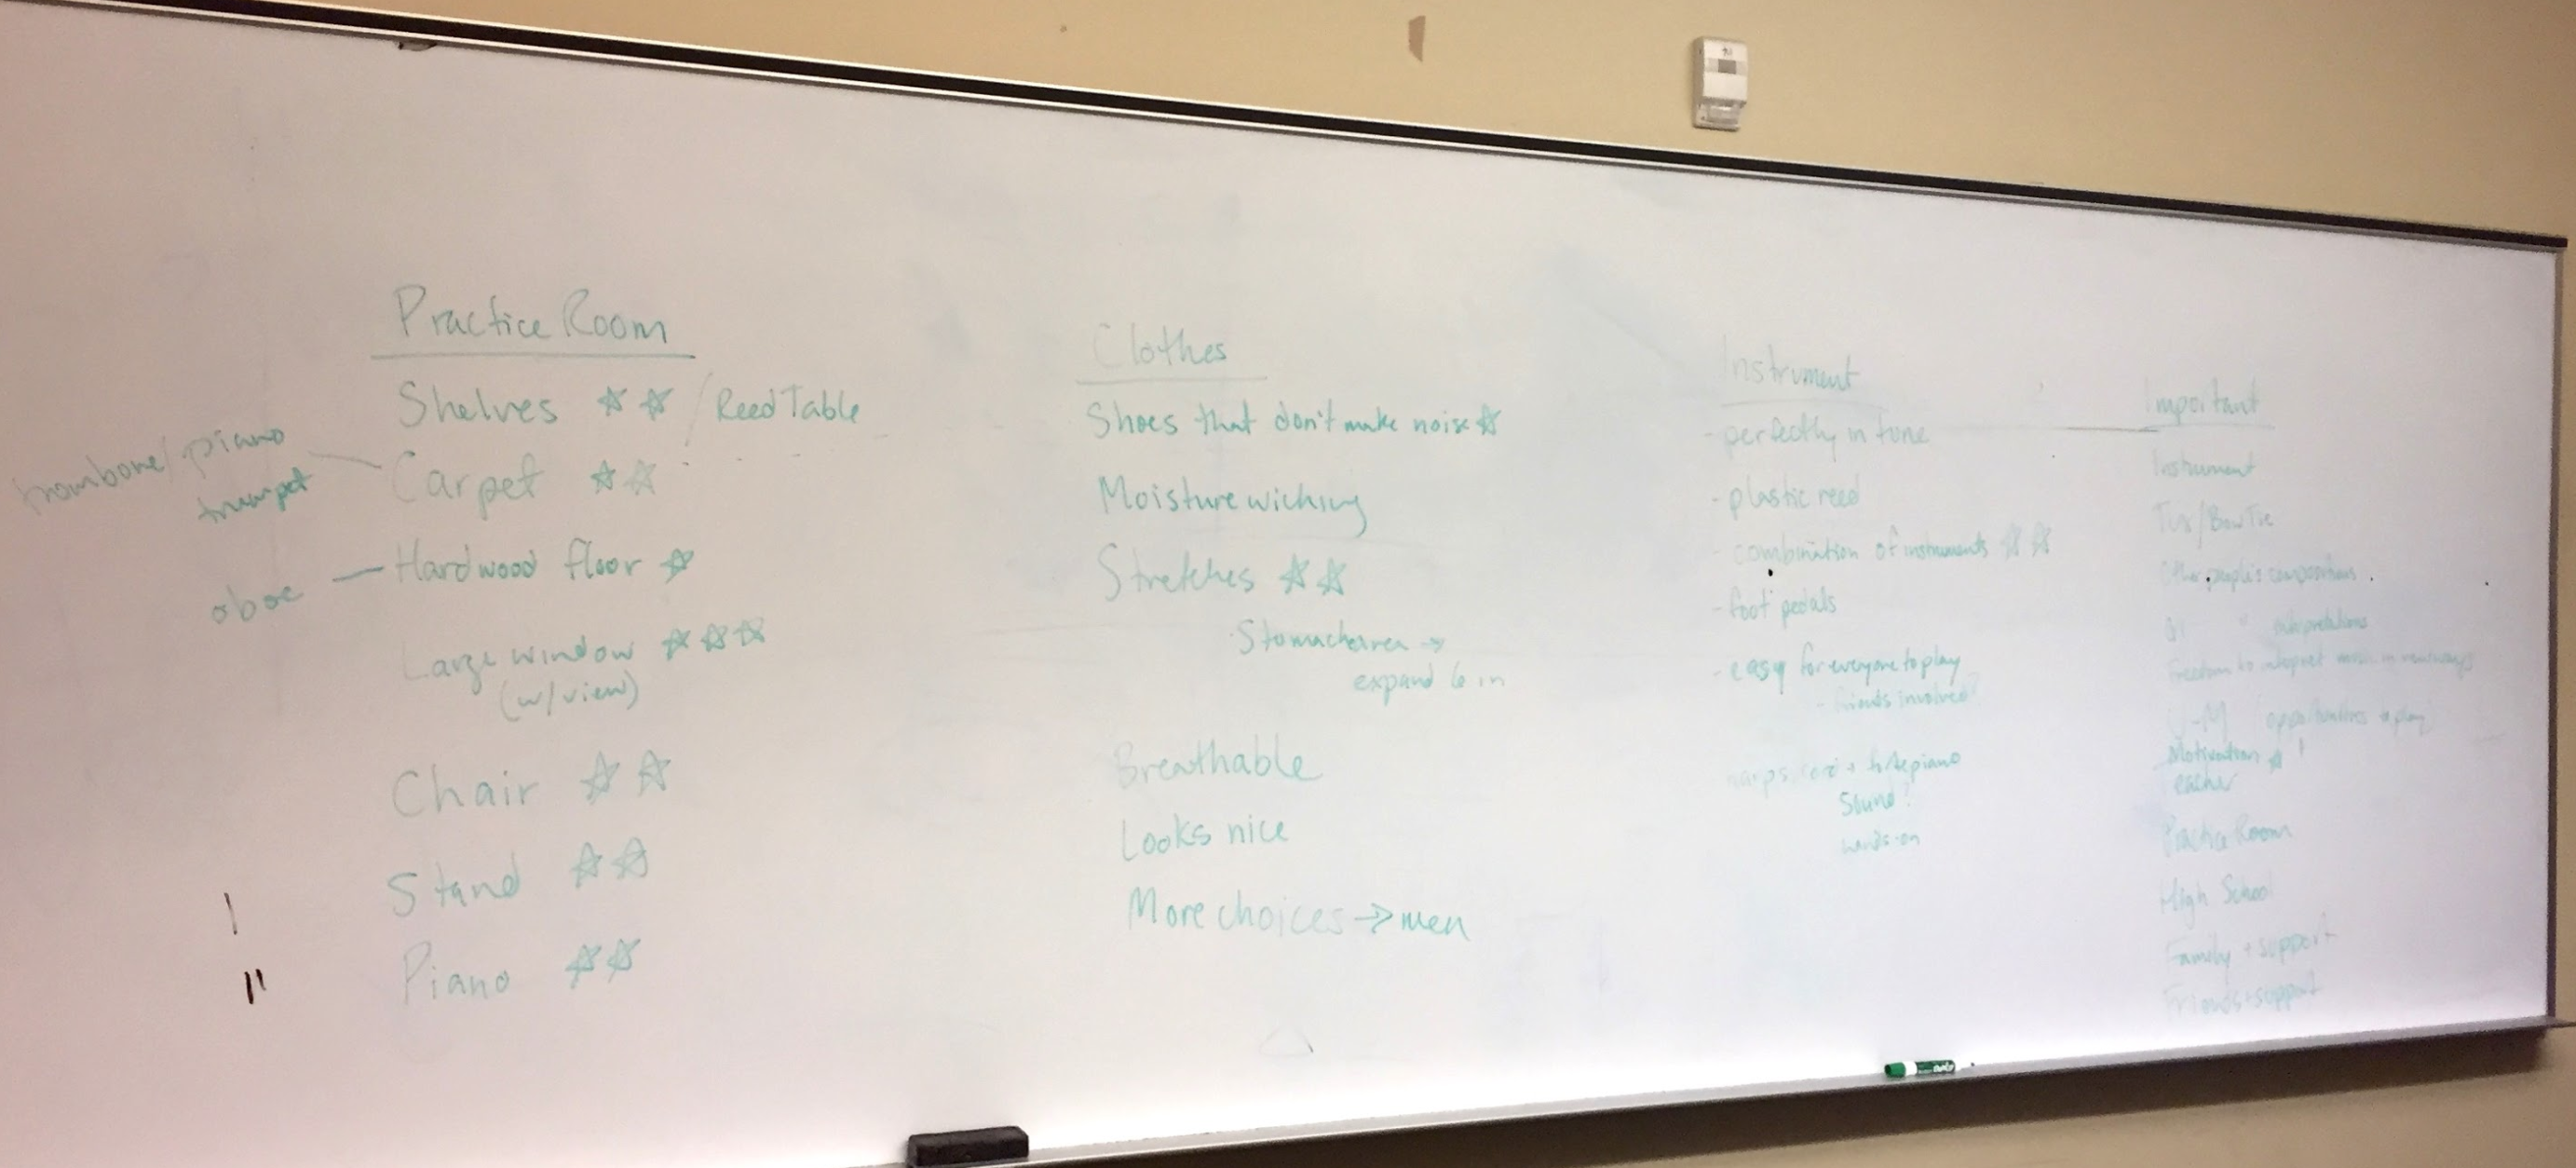 Practice Room
Shelves ☆☆ / Reed Table
trombone/piano
trumpet
Carpet ☆☆
oboe — Hardwood floor ☆
Large window ☆☆☆
(w/view)
Chair ☆☆
Stand ☆☆
Piano ☆☆
Clothes
Shoes that don't make noise ☆
Moisture wicking
Stretches ☆☆
Stomach area →
expand 6 in
Breathable
Looks nice
More choices → men
Instrument
- perfectly in tune
- plastic reed
- combination of instruments ☆☆
- foot pedals
- easy for everyone to play
- friends involved?
+ fortepiano
Sound?
hands-on
Important
Instrument
Tux/Bow Tie
Other people's compositions
" interpretations
Freedom to interpret music in new ways
U-M opportunities to play
Motivation ☆
eacher
Practice Room
High School
Family + support
Friends + support